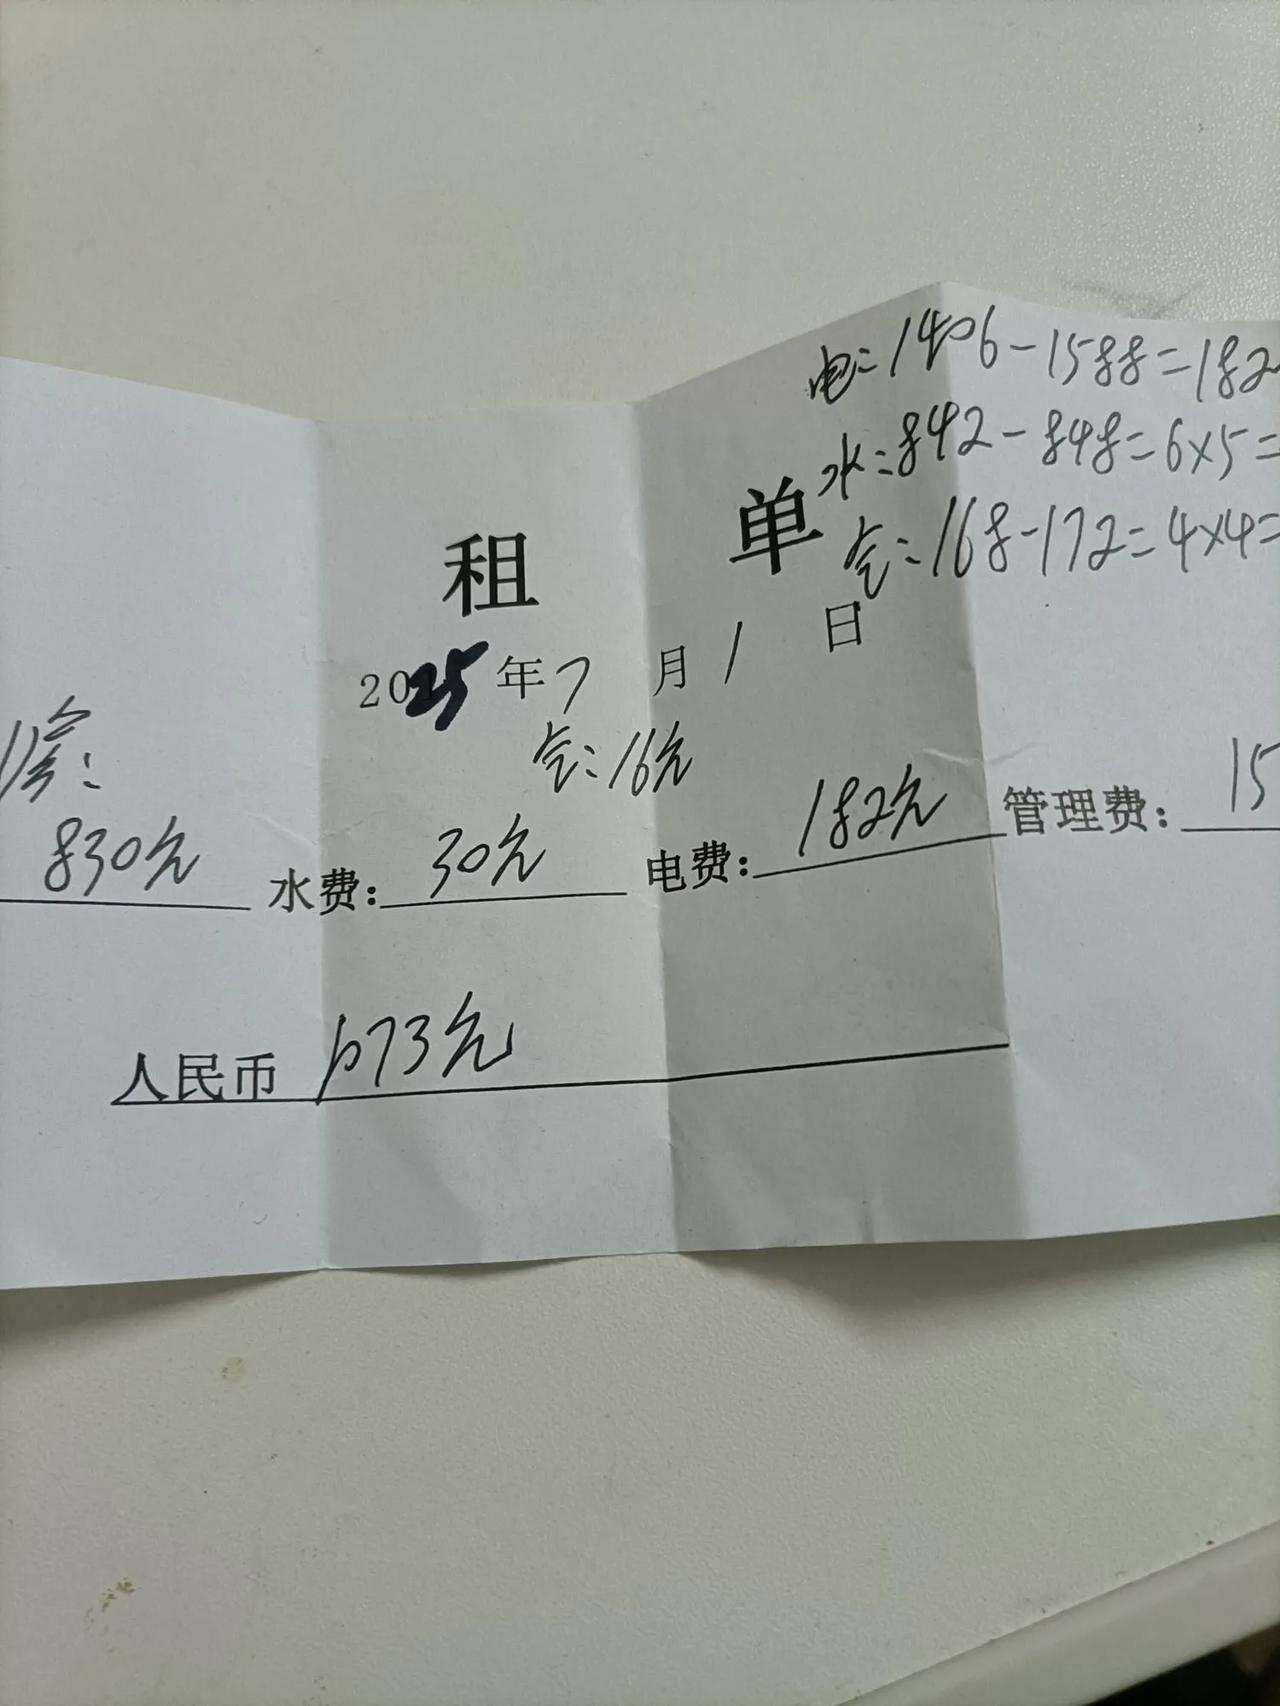 电:1406-1588=182
水:842-848=6×5=
气:168-172=4×4=
租 单
2025年7月1日
气:16元
830元 水费:30元 电费:182元 管理费:15
人民币 1073元